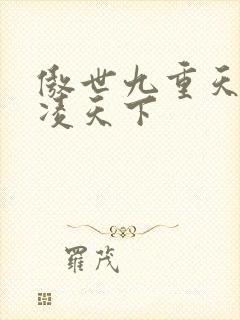 傲世九重天
凌天下
羅茂